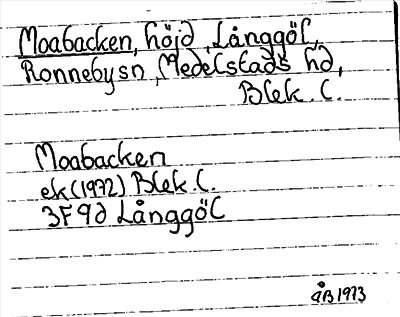 Moabacken, höjd, Långgöl,
Ronnebysn, Medelstads hd,
Blek. l.
Moabacken
ek (1972) Blek. l.
3F9d Långgöl
ÅB 1973